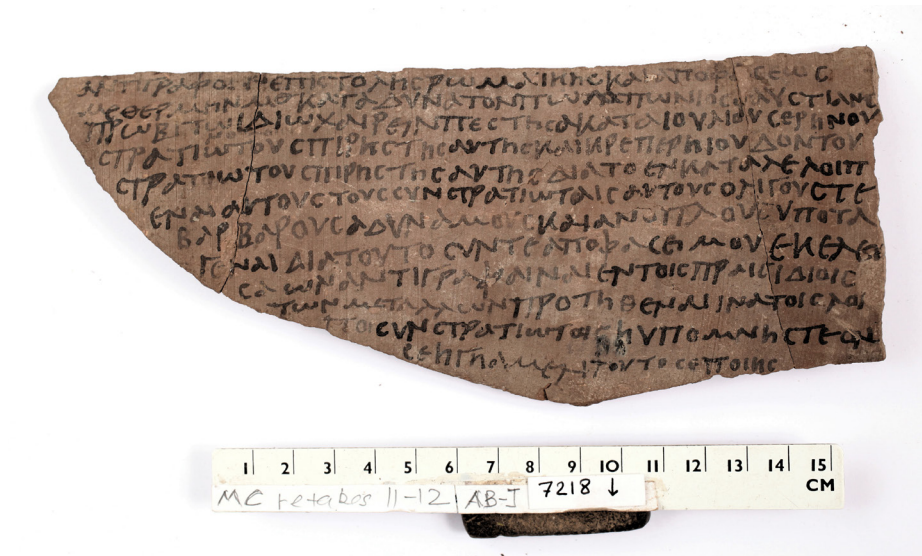 ΑΝΤΙΓΡΑΦΟΝ ΕΠΙϹΤΟΛΗϹ ΡΩΜΑΙΚΗϹ ΚΑΙ ΑΠΟΦΑϹΕΩϹ
ΚΑΤΑ ΔΥΝΑΤΟΝ
ΠΡΩΒΙΤΩΙ ΙΔΙΩ ΧΑΙΡΕΙΝ ΚΑΤΑ ΙΟΥΛΙΟΥ ϹΕΡΗΝΟΥ
ϹΤΡΑΤΙΩΤΟΥ ϹΠΙΡΗϹ ΤΗϹ ΑΥΤΗϹ ΚΑΙ ΚΡΕΠΕΡΗΙΟΥ ΔΟΝΤΟΥ
ϹΤΡΑΤΙΩΤΟΥ ϹΠΙΡΗϹ ΤΗϹ ΑΥΤΗϹ ΔΙΑ ΤΟ ΕΝΚΑΤΑΛΕΛΟΙΠ
ΕΝΑΙ ΑΥΤΟΥϹ ΤΟΥϹ ϹΥΝϹΤΡΑΤΙΩΤΑΙϹ ΑΥΤΟΥϹ ΟΛΙΓΟΥϹ ΤΕ
ΒΑΡΒΑΡΟΥϹ ΑΔΥΝΑΜΟΥϹ ΚΑΙ ΑΝΟΠΛΟΥϹ ΥΠΟ ΤΑ
ΓΕΝΑΙ ΔΙΑ ΤΟΥΤΟ ϹΥΝ ΤΕ ΑΠΟΦΑϹΕΙ ΜΟΥ ΕΚΕΛΕΥ
ϹΑ ΩΝ ΑΝΤΙΓΡΑΦΑΙΝΑΙ ΕΝ ΤΟΙϹ ΠΡΑΙϹΙΔΙΟΙϹ
ΤΩΝ ΜΕΤΑΛΛΩΝ ΠΡΟΤΗΘΕΝΑΙ ΙΝΑ ΤΟΙϹ ΛΟΙ
ΠΟΙϹ ϹΥΝϹΤΡΑΤΙΩΤΑΙϹ Η ΥΠΟΜΝΗϹΤΕΟΝ
ΤΟΥΤΟ
1 2 3 4 5 6 7 8 9 10 11 12 13 14 15
CM
MC retapes 11-12 AB-I 7218 ↓